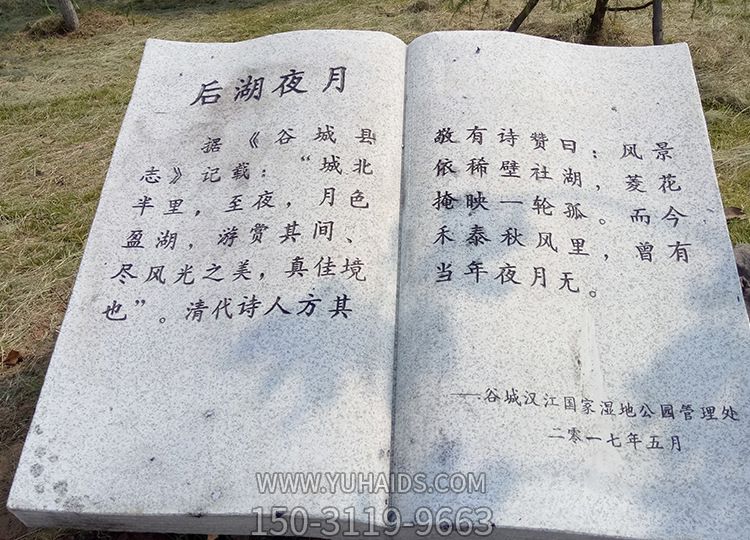 后湖夜月
据《谷城县
志》记载：“城北
半里，至夜，月色
盈湖，游赏其间、
尽风光之美，真佳境
也”。清代诗人方其
敬有诗赞曰：风景
依稀壁社湖，菱花
掩映一轮孤。而今
禾泰秋风里，曾有
当年夜月无。
——谷城汉江国家湿地公园管理处
二零一七年五月
WWW.YUHAIDS.COM
150-3119-9663